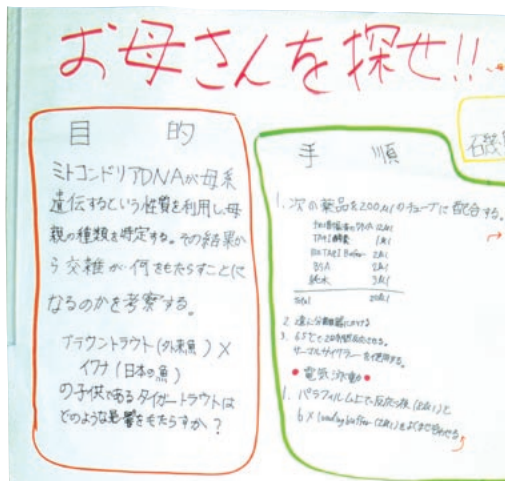 お母さんを探せ!!
目 的
ミトコンドリアDNAが母系
遺伝するという性質を利用し、母
親の種類を特定する。その結果か
ら交雑が何をもたらすことに
なるのかを考察する。
ブラウントラウト(外来魚)×
イワナ(日本の魚)
の子供であるタイガートラウトは
どのような影響をもたらすか?
手 順
1. 次の薬品を200μlのチューブに配合する。
12μl
TaqI酵素 1μl
10×TaqI Buffer 2μl
BSA 2μl
純水 3μl
total 20μl
2. 遠心分離器にかける
3. 65℃で2時間反応させる。
サーマルサイクラーを使用する。
・電気泳動・
1. パラフィルム上で反応液(2μl)と
6×loading buffer(2μl)をよくまぜ合わせる